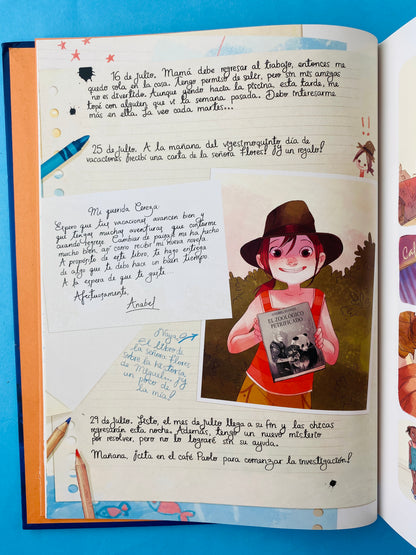 16 de julio. Mamá debe regresar al trabajo, entonces me
quedo sola en la casa. Tengo permiso de salir, pero sin mis amigas
no es divertido. Aunque yendo hacia la piscina, esta tarde, me
topé con alguien que vi la semana pasada. Debo interesarme
más en ella. La veo cada martes...
25 de julio. A la mañana del vigesimoquinto día de
vacaciones ¡recibí una carta de la señora Flores! ¡Y un regalo!
Mi querida Cereza:
Espero que tus vacaciones avancen bien y
que tengas muchas aventuras que contarme
cuando regrese. Cambiar de paisaje me ha hecho
mucho bien, así como recibir mi nueva novela.
A propósito de este libro, te hago entrega
de algo que te debo hace un buen tiempo.
A la espera de que te guste...
Afectuosamente,
Anabel
EL ZOOLÓGICO
PETRIFICADO
¡Vaya!
El libro de
la señora Flores
sobre la historia
de Miguel... ¡y
un poco de
la mía!
29 de julio. Listo, el mes de julio llega a su fin y las chicas
regresarán esta noche. Además, tengo un nuevo misterio
por resolver, pero no lo lograré sin su ayuda.
Mañana, ¡cita en el café Pablo para comenzar la investigación!